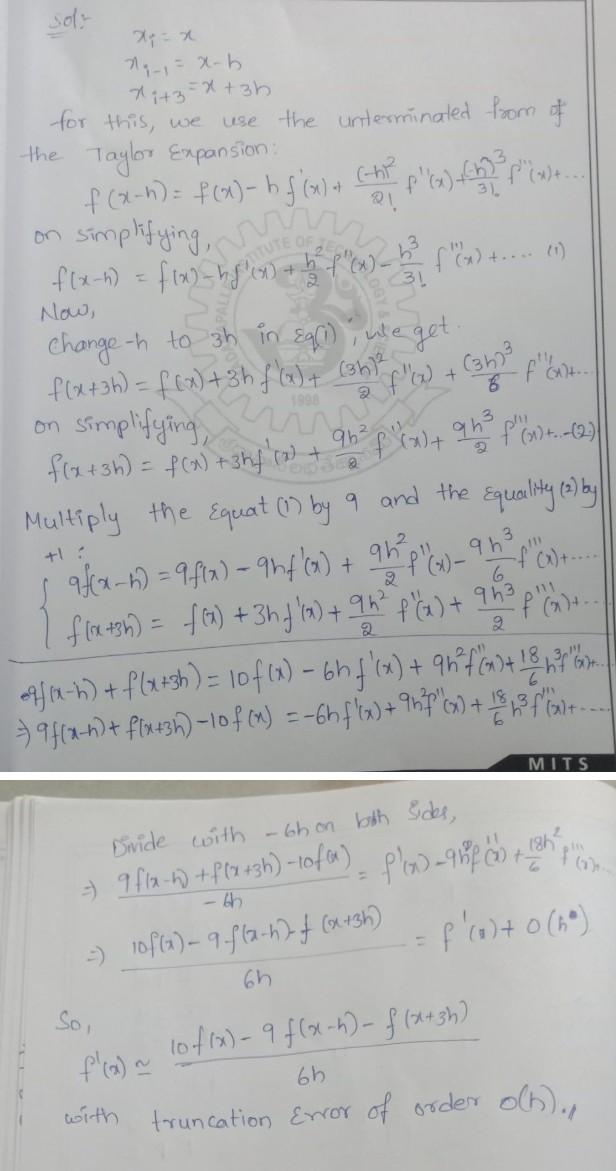 Sol:-
x_i = x
x_{i-1} = x-h
x_{i+3} = x + 3h
for this, we use the unterminated from of
the Taylor Expansion:
f(x-h) = f(x) - h f'(x) + (-h)^2/2! f''(x) + (-h)^3/3! f'''(x) + ...
on simplifying,
f(x-h) = f(x) - hf'(x) + h^2/2 f''(x) - h^3/3! f'''(x) + .... (1)
Now,
change -h to 3h in Eq(1), we get.
f(x+3h) = f(x) + 3h f'(x) + (3h)^2/2 f''(x) + (3h)^3/6 f'''(x)+...
on simplifying,
f(x+3h) = f(x) + 3hf'(x) + 9h^2/2 f''(x) + 9h^3/2 f'''(x)+...-(2)
Multiply the Equat (1) by 9 and the Equality (2) by
+1 :
9f(x-h) = 9f(x) - 9hf'(x) + 9h^2/2 f''(x) - 9h^3/6 f'''(x)+....
f(x+3h) = f(x) + 3hf'(x) + 9h^2/2 f''(x) + 9h^3/2 f'''(x)+...
9f(x-h) + f(x+3h) = 10f(x) - 6hf'(x) + 9h^2f''(x) + 18/6 h^3f'''(x)+...
⇒ 9f(x-h) + f(x+3h) - 10f(x) = -6hf'(x) + 9h^2f''(x) + 18/6 h^3f'''(x)+.....
MITS
Divide with -6h on both sides,
⇒ 9f(x-h) + f(x+3h) - 10f(x) / -6h = f'(x) - 9hf''(x) + 18h^2/6 f'''(x)+...
⇒ 10f(x) - 9f(x-h) - f(x+3h) / 6h = f'(x) + O(h)
So,
f'(x) ≃ 10f(x) - 9f(x-h) - f(x+3h) / 6h
with truncation Error of order O(h).,,